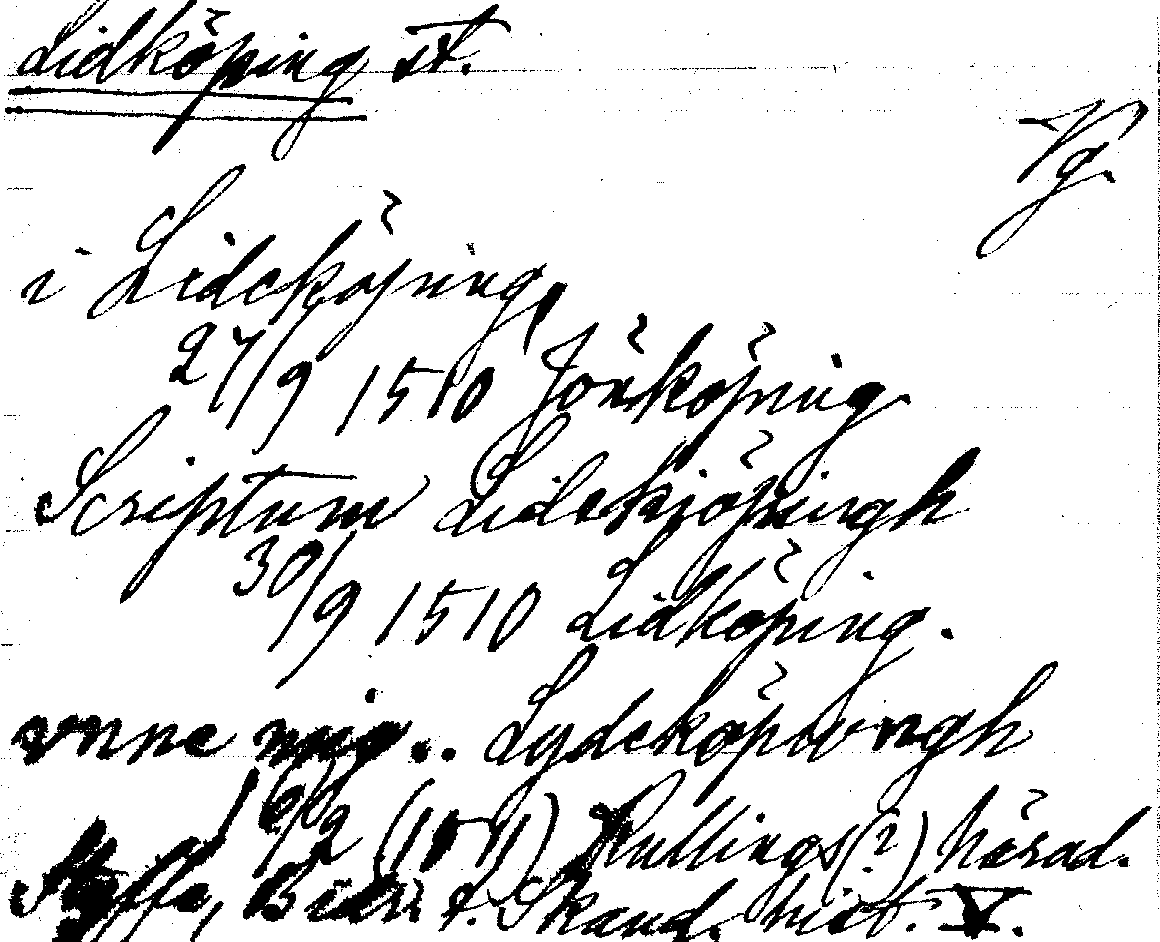 Lidköping st.
Vg.
i Lideköping,
27/9 1510 Jönköping
Scriptum Lidekiöpingh
30/9 1510 Lidköping.
vnne mig.. Lydeköpivngh
/2 (1511) Kullings(?) härad.
Styffe, Bidr. t. Skand. hist. V.